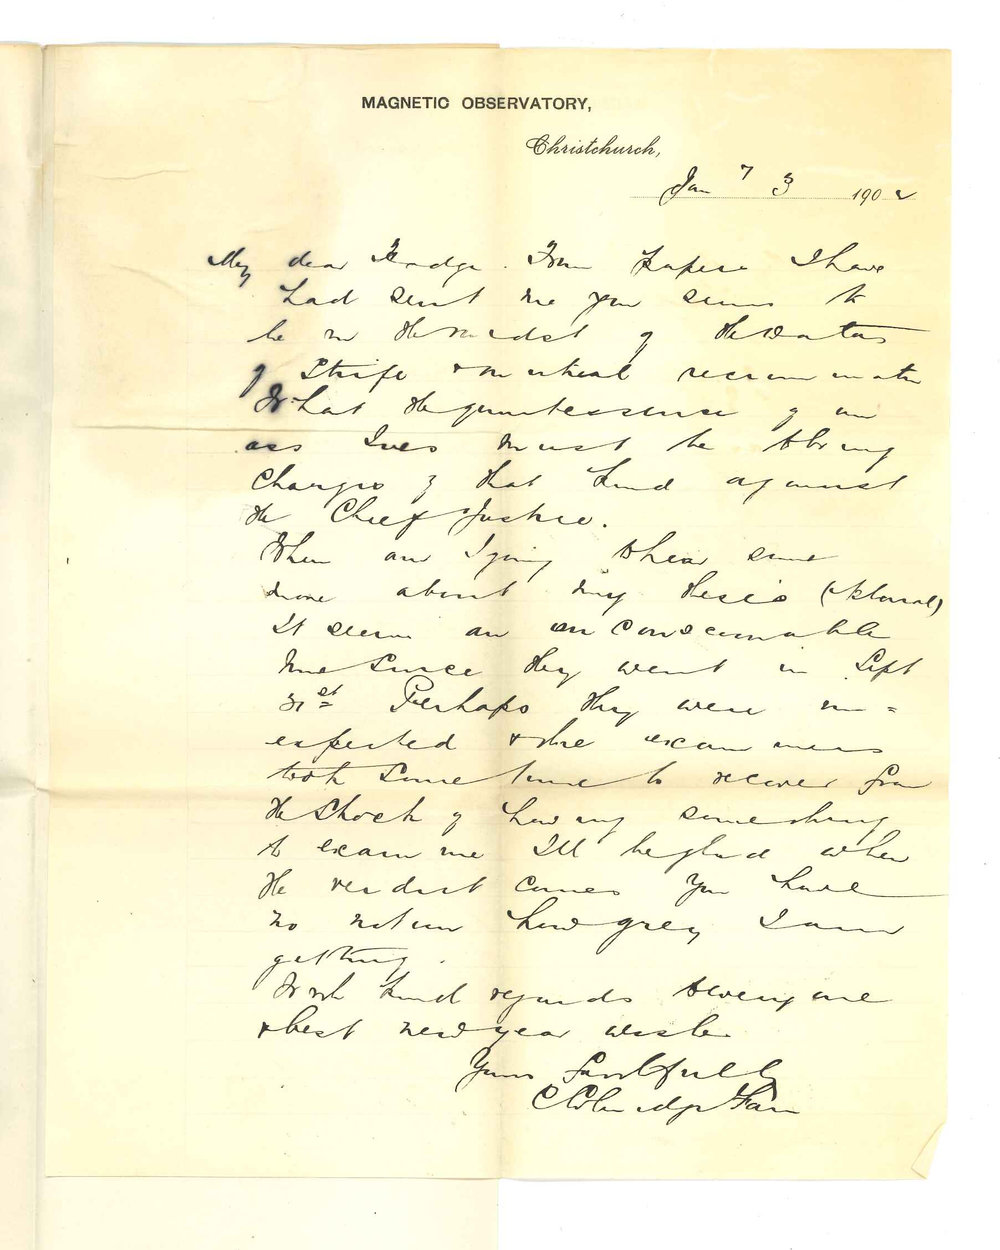 MAGNETIC OBSERVATORY,
Christchurch,
Jan 7 3 1902
My dear From papers I have
had sent me you seem to
be in the midst of the waters
of Strife & mutual recrimination
What the quintessence of an
ass Ives must be to bring
charges of that kind against
the Chief Justice.
When am I going to hear some
more about my thesis (plural)
It seems an unconscionable
time since they went in Sept
31st Perhaps they were un=
expected & the examiners
took some time to recover from
the shock of having something
to examine Ill be glad when
the verdict comes You have
no notion how grey I am
getting.
With kind regards to everyone
& best new year wishes
Yours faithfully
C Coleridge Farr